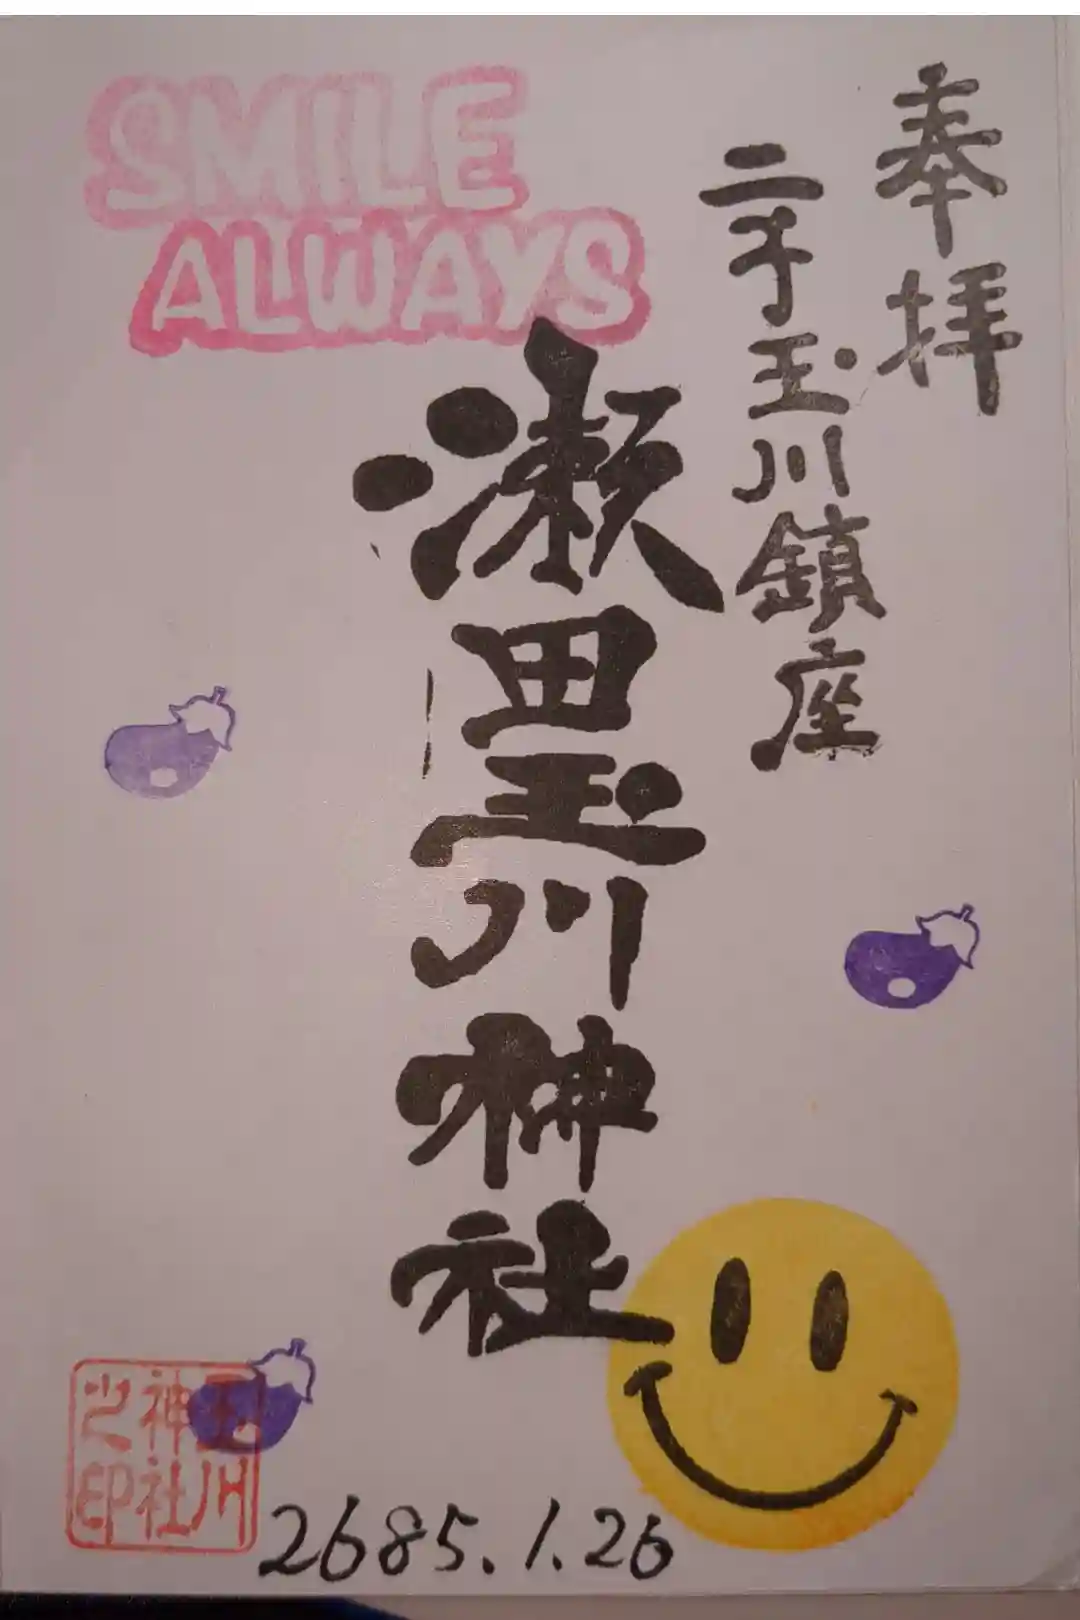 奉拝
二子玉川鎮座
SMILE
ALWAYS
瀬田玉川神社
玉川
神社
之印
2685.1.26